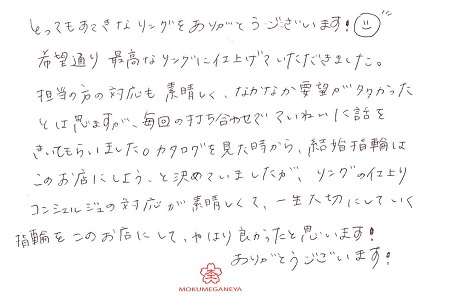 とってもすてきなリングをありがとうございます!
希望通り最高なリングに仕上げていただきました。
担当の方の対応も素晴しく、なかなか要望が多かった
とは思いますが、毎回の打ち合わせでていねいに話を
きいてもらいました。カタログを見た時から、結婚指輪は
このお店にしよう、と決めていましたが、リングの仕上り
コンシェルジュの対応が素晴しくて、一生大切にしていく
指輪をこのお店にして、やはり良かったと思います!
ありがとうございます!
MOKUMEGANEYA